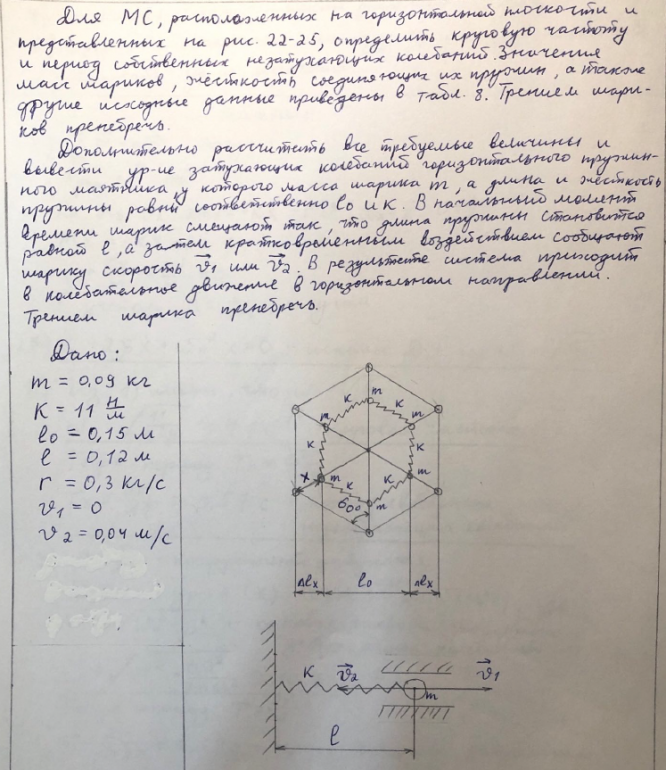 Для МС, расположенных на горизонтальной плоскости и
представленных на рис. 22-25, определить круговую частоту
и период собственных незатухающих колебаний. Значения
масс шариков, жёсткость соединяющих их пружин, а также
другие исходные данные приведены в табл. 8. Трением шари-
ков пренебречь.
Дополнительно рассчитать все требуемые величины и
вывести ур-ие затухающих колебаний горизонтального пружин-
ного маятника, у которого масса шарика m, а длина и жёсткость
пружины равны соответственно l0 и к. В начальный момент
времени шарик смещают так, что длина пружины становится
равной l, а затем кратковременным воздействием сообщают
шарику скорость v⃗1 или v⃗2. В результате система приходит
в колебательное движение в горизонтальном направлении.
Трением шарика пренебречь.
Дано:
m = 0,09 кг
K = 11 Н/м
l0 = 0,15 м
l = 0,12 м
r = 0,3 кг/с
v1 = 0
v2 = 0,04 м/с
m
к к
m m
к к
x m к к m
60° m
Δlx l0 Δlx
K v⃗2 m v⃗1
l